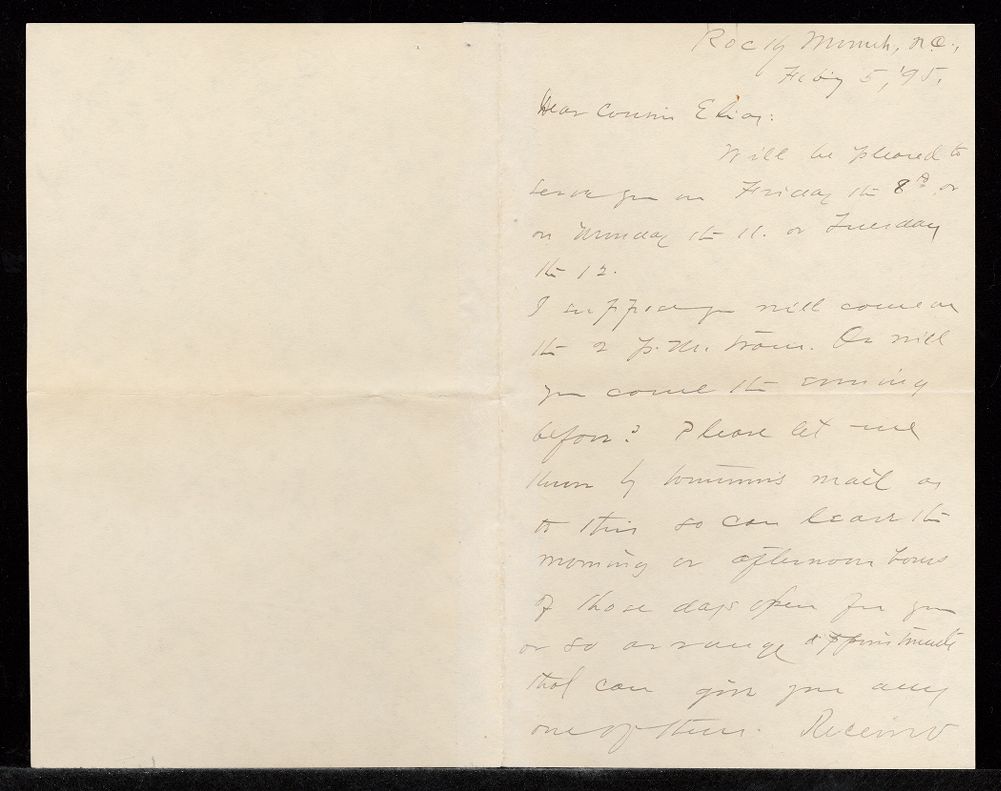 Rocky Mount, N.C.,
Feby 5, '95.
Dear Cousin Elias:
Will be pleased to
serve you on Friday the 8th or
on Monday the 11. or Tuesday
the 12.
I suppose you will come on
the 2 P.M. train. Or will
you come the evening
before? Please let me
know by mail as
to this so can leave the
morning or afternoon hours
of those days open for you
or so arrange appointments
that can give you any
one of them. Received